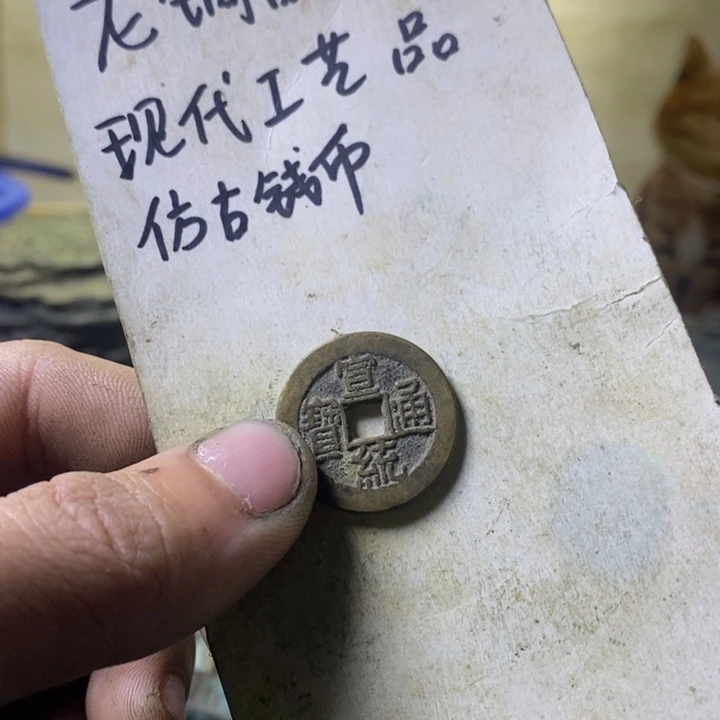 老铜
现代工艺品
仿古钱币
宣統通寶